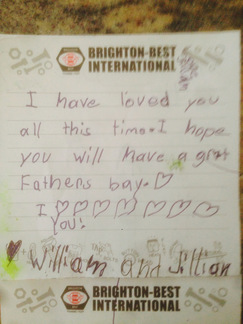 BRIGHTON-BEST
INTERNATIONAL
I have loved you
all this time. I hope
you will have a grat
Fathers bay.
I
You!
William and Jillian
BRIGHTON-BEST
INTERNATIONAL